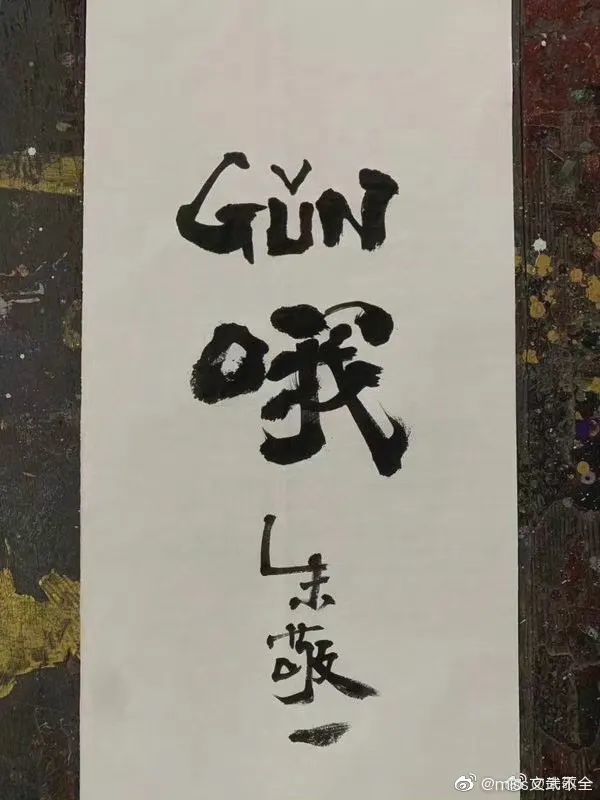 GǓN
哦
朱敬一
@miss文武不全